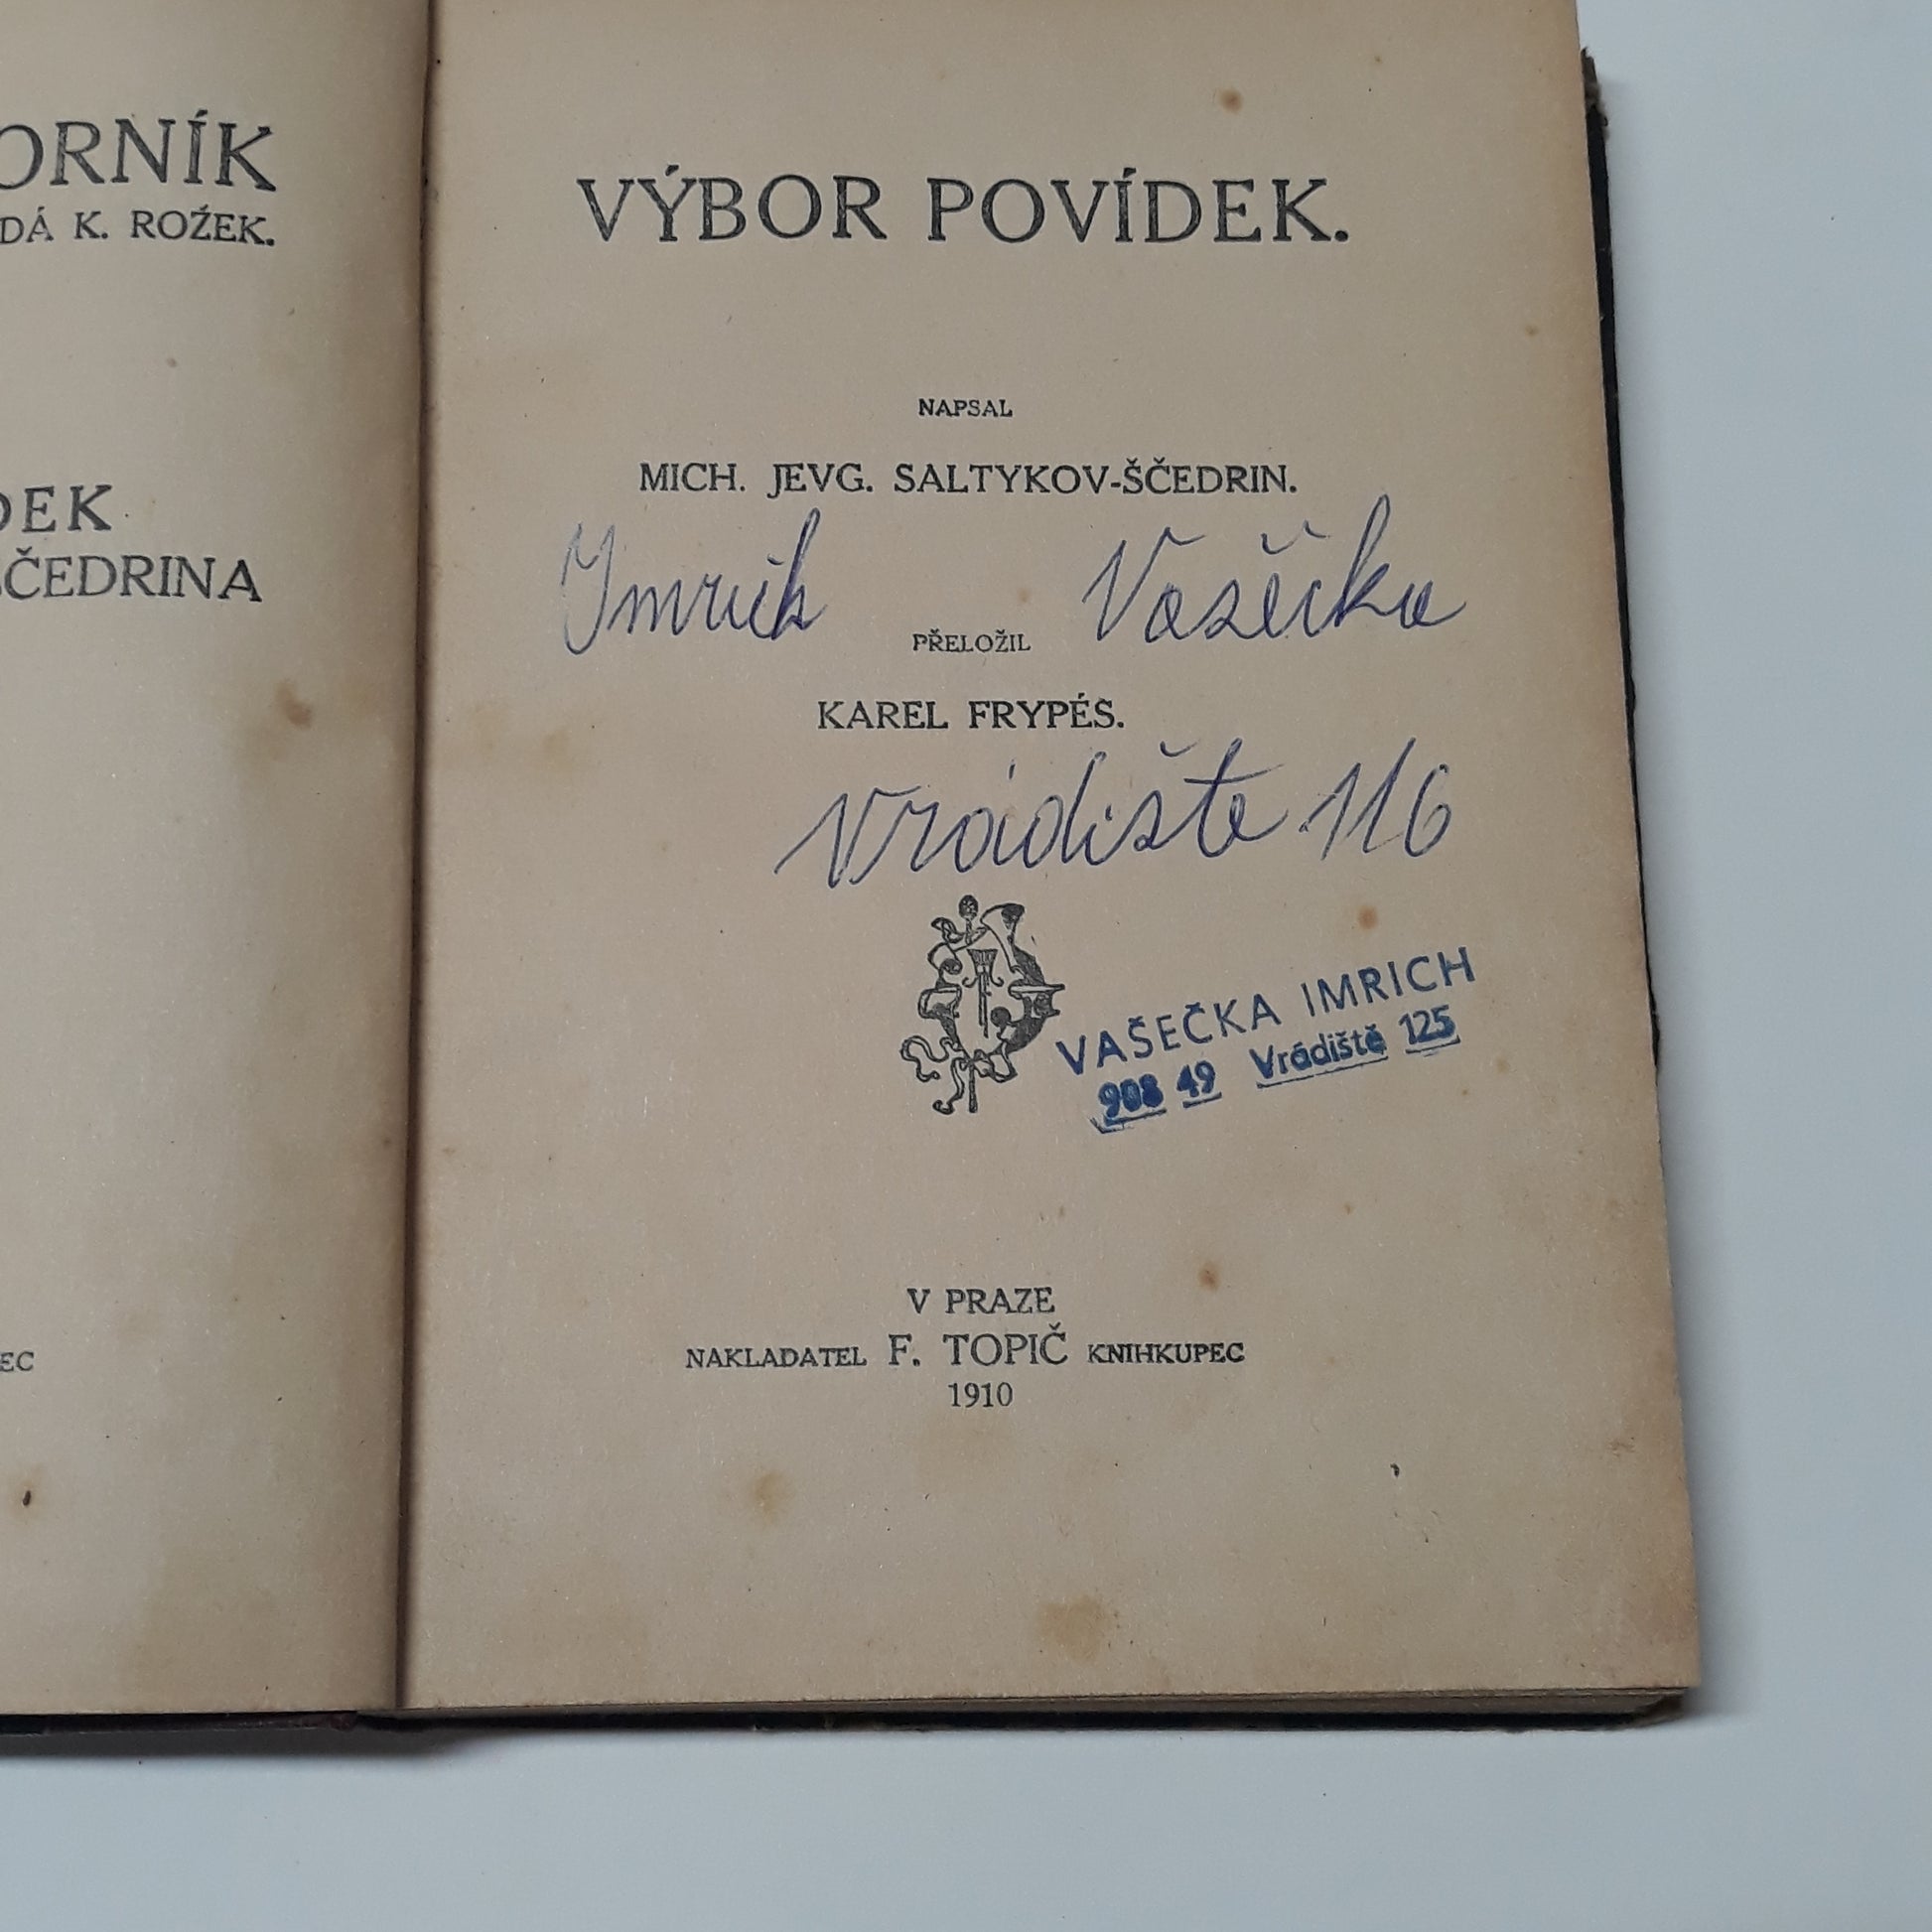 ORNÍK
DÁ K. ROŽEK.
DEK
ČEDRINA
EC
VÝBOR POVÍDEK.
NAPSAL
MICH. JEVG. SALTYKOV-ŠČEDRIN.
Imrich Vašečka
PŘELOŽIL
KAREL FRYPÉS.
Vrádište 116
VAŠEČKA IMRICH
908 49 Vrádiště 125
V PRAZE
NAKLADATEL F. TOPIČ KNIHKUPEC
1910